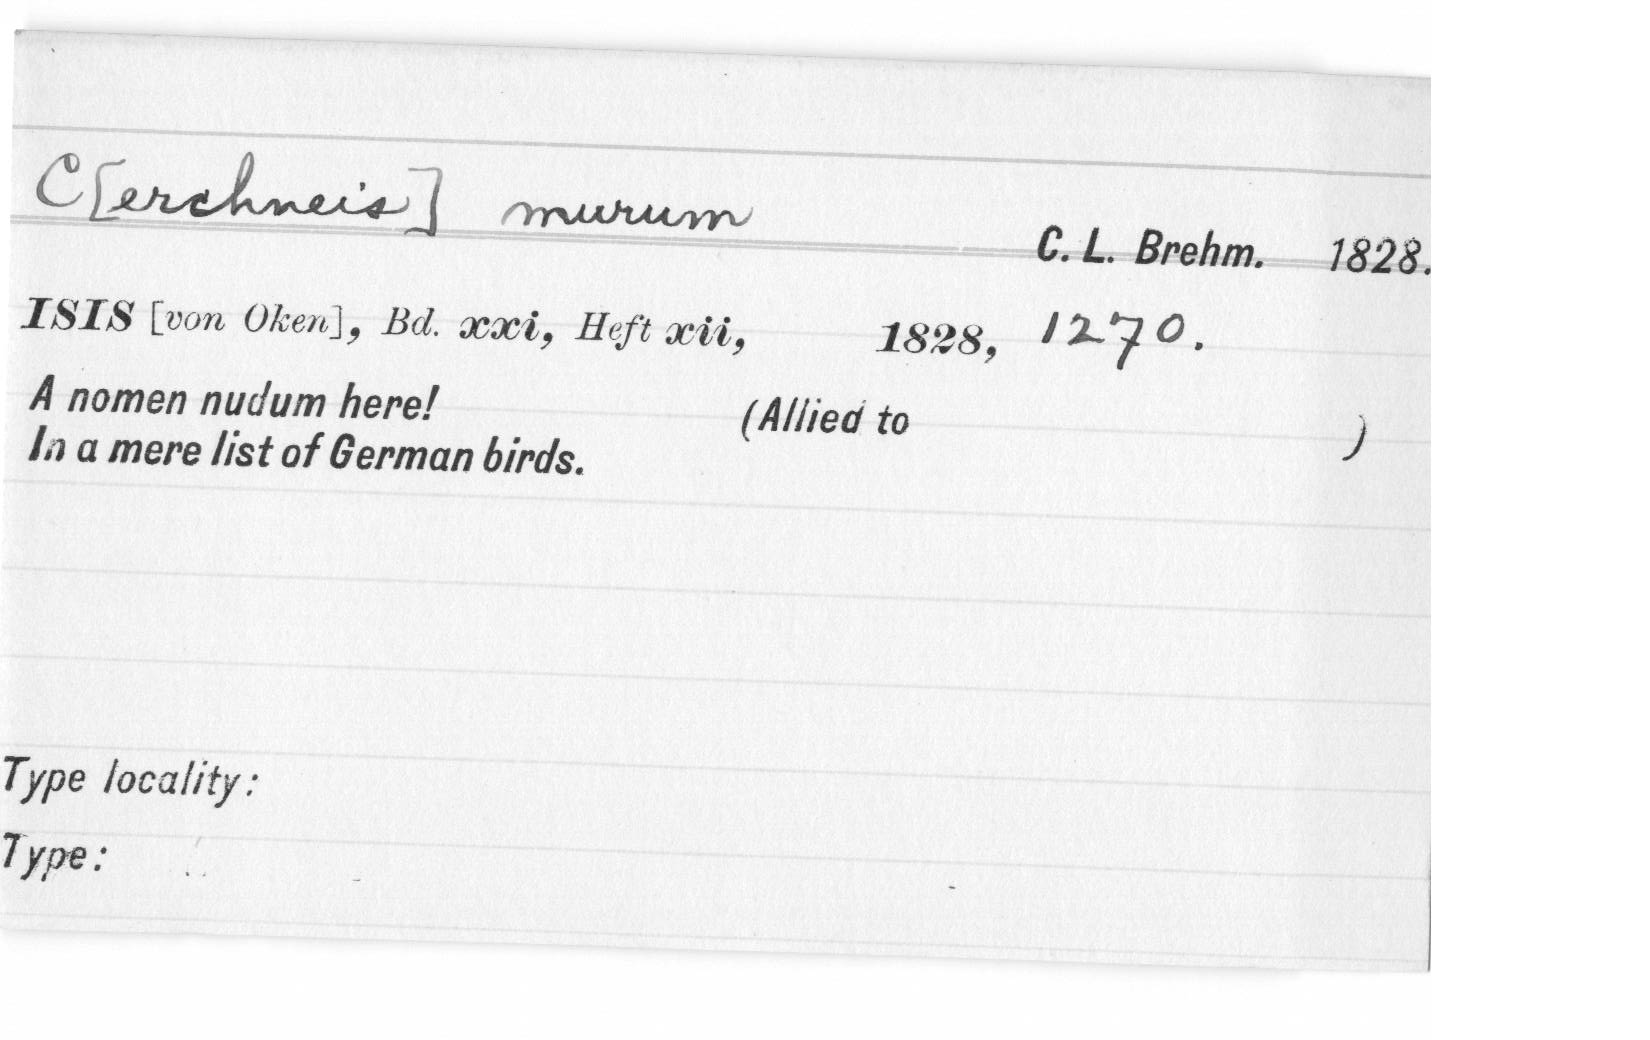 C[erchneis] murum
C. L. Brehm. 1828.
ISIS [von Oken], Bd. xxi, Heft xii, 1828, 1270.
A nomen nudum here! (Allied to )
In a mere list of German birds.
Type locality:
Type: